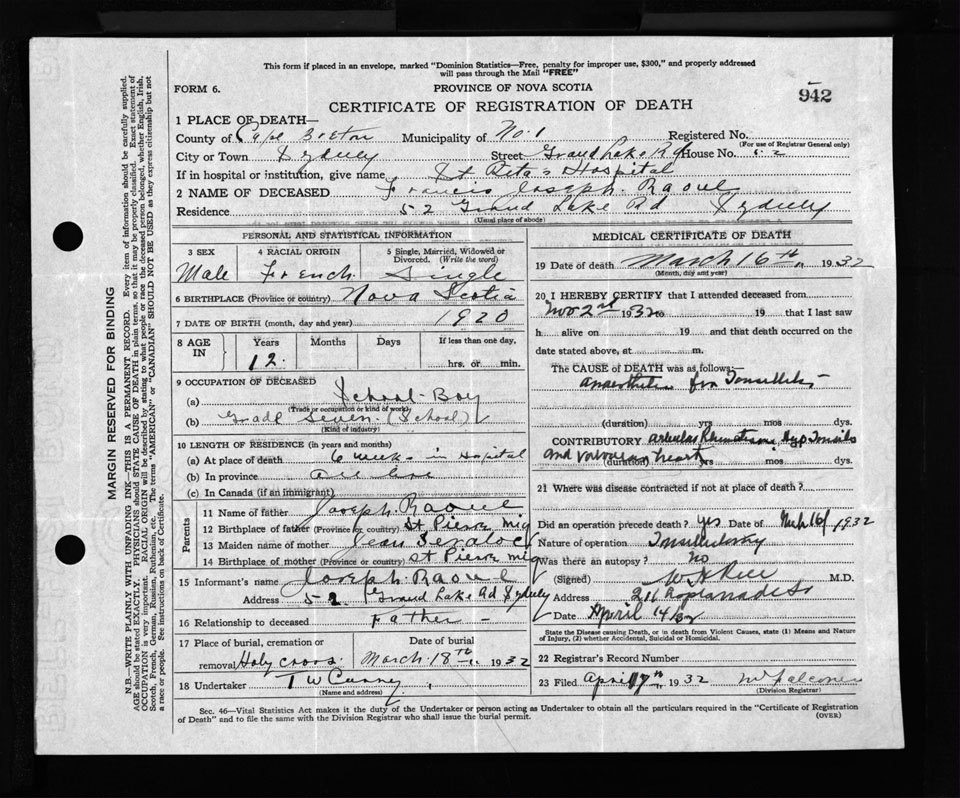 This form if placed in an envelope, marked "Dominion Statistics—Free, penalty for improper use, $300," and properly addressed
will pass through the Mail "FREE"
FORM 6.
PROVINCE OF NOVA SCOTIA
942
CERTIFICATE OF REGISTRATION OF DEATH
1 PLACE OF DEATH—
County of Cape Breton Municipality of No. 1 Registered No.
(For use of Registrar General only)
City or Town Sydney Street Grand Lake Rd House No. 52
If in hospital or institution, give name St Rita's Hospital
2 NAME OF DECEASED Francis Joseph Raoul
Residence 52 Grand Lake Rd Sydney
(Usual place of abode)
PERSONAL AND STATISTICAL INFORMATION
3 SEX 4 RACIAL ORIGIN 5 Single, Married, Widowed or
Divorced. (Write the word)
Male French Single
6 BIRTHPLACE (Province or country) Nova Scotia
7 DATE OF BIRTH (month, day and year) 1920
8 AGE IN Years Months Days If less than one day,
12 hrs. or min.
9 OCCUPATION OF DECEASED
(a) School-Boy
(Trade or occupation or kind of work)
(b) Grade Seven (School)
(Kind of industry)
10 LENGTH OF RESIDENCE (in years and months)
(a) At place of death 6 weeks in Hospital
(b) In province
(c) In Canada (if an immigrant)
Parents
11 Name of father Joseph Raoul
12 Birthplace of father (Province or country) St Pierre Miq
13 Maiden name of mother Jean
14 Birthplace of mother (Province or country) St Pierre Miq
15 Informant's name Joseph Raoul
Address 52 Grand Lake Rd Sydney
16 Relationship to deceased Father
17 Place of burial, cremation or Date of burial
removal Holy Cross March 18th 1932
18 Undertaker T W Curry
(Name and address)
MEDICAL CERTIFICATE OF DEATH
19 Date of death March 16th 1932
(Month, day and year)
20 I HEREBY CERTIFY that I attended deceased from
Nov 2nd 1932 to 19 that I last saw
h alive on 19 and that death occurred on the
date stated above, at m.
The CAUSE OF DEATH was as follows:—
anaesthetic for Tonsillitis
(duration) yrs mos dys.
CONTRIBUTORY articular Rheumatism, Hyp Tonsils
and valvular heart
(duration) yrs mos dys.
21 Where was disease contracted if not at place of death?
Did an operation precede death? Yes Date of Mch 16/1932
Nature of operation Tonsillectomy
Was there an autopsy? No
(Signed) M.D.
Address 211 Esplanade St
Date April 14/32
State the Disease causing Death, or in death from Violent Causes, state (1) Means and Nature
of Injury, (2) whether Accidental, Suicidal or Homicidal.
22 Registrar's Record Number
23 Filed April 17th 1932
(Division Registrar)
Sec. 46—Vital Statistics Act makes it the duty of the Undertaker or person acting as Undertaker to obtain all the particulars required in the "Certificate of Registration
of Death" and to file the same with the Division Registrar who shall issue the burial permit.
(OVER)
MARGIN RESERVED FOR BINDING
N.B.—WRITE PLAINLY WITH UNFADING INK—THIS IS A PERMANENT RECORD. Every item of information should be carefully supplied.
AGE should be stated EXACTLY. PHYSICIANS should STATE CAUSE OF DEATH in plain terms, so that it may be properly classified. Exact statement of
OCCUPATION is very important. RACIAL ORIGIN will be described by stating to what people or race the deceased person belonged, whether English, Irish,
Scotch, French, German, Russian, Ruthenian, etc. The terms "AMERICAN" or "CANADIAN" SHOULD NOT BE USED as they express citizenship but not
a race or people. See instructions on back of Certificate.